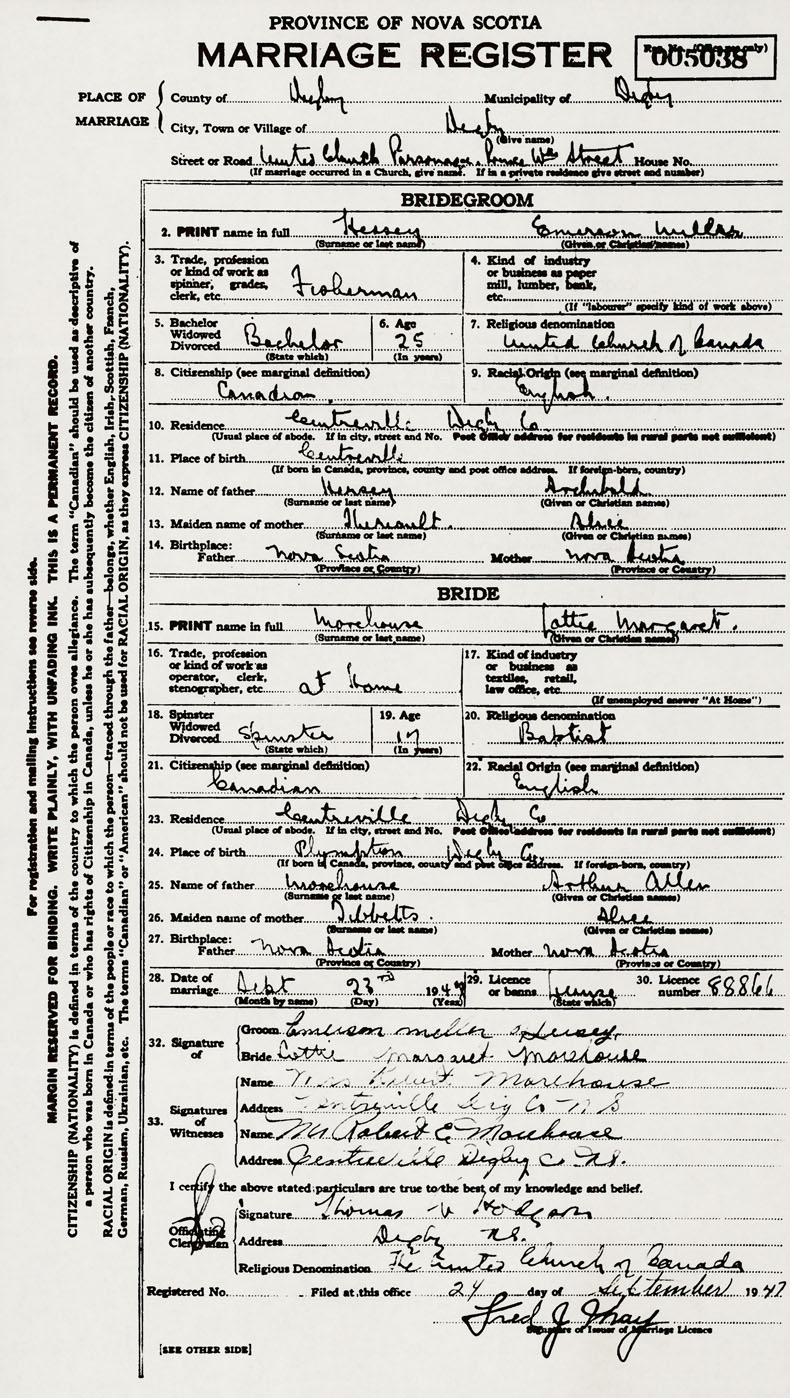 PROVINCE OF NOVA SCOTIA
MARRIAGE REGISTER
005038
PLACE OF MARRIAGE
County of Digby Municipality of Digby
City, Town or Village of Digby
(Give name)
Street or Road United Church Parsonage, Prince Wm Street House No.
(If marriage occurred in a Church, give name. If in a private residence give street and number)
BRIDEGROOM
2. PRINT name in full Hersey Emerson Miller
(Surname or last name) (Given or Christian names)
3. Trade, profession or kind of work as spinner, grades, clerk, etc. Fisherman
4. Kind of industry or business as paper mill, lumber, bank, etc.
(If "labourer" specify kind of work above)
5. Bachelor Widowed Divorced Bachelor
(State which)
6. Age 25
(In years)
7. Religious denomination
United Church of Canada
8. Citizenship (see marginal definition)
Canadian
9. Racial Origin (see marginal definition)
English.
10. Residence Centreville Digby Co
(Usual place of abode. If in city, street and No. Post Office address for residents in rural parts not sufficient)
11. Place of birth Centreville
(If born in Canada, province, county and post office address. If foreign-born, country)
12. Name of father Hersey Archibald
(Surname or last name) (Given or Christian names)
13. Maiden name of mother Theriault. Alice
(Surname or last name) (Given or Christian names)
14. Birthplace:
Father Nova Scotia Mother Nova Scotia
(Province or Country) (Province or Country)
BRIDE
15. PRINT name in full Morehouse Lottie Margaret.
(Surname or last name) (Given or Christian names)
16. Trade, profession or kind of work as operator, clerk, stenographer, etc. at Home
17. Kind of industry or business as textiles, retail, law office, etc.
(If unemployed answer "At Home")
18. Spinster Widowed Divorced Spinster
(State which)
19. Age 17
(In years)
20. Religious denomination
Baptist
21. Citizenship (see marginal definition)
Canadian
22. Racial Origin (see marginal definition)
English
23. Residence Centreville Digby Co
(Usual place of abode. If in city, street and No. Post Office address for residents in rural parts not sufficient)
24. Place of birth Plympton Digby Co.
(If born in Canada, province, county and post office address. If foreign-born, country)
25. Name of father Morehouse Arthur Allen
(Surname or last name) (Given or Christian names)
26. Maiden name of mother Tibbetts. Alice
(Surname or last name) (Given or Christian names)
27. Birthplace:
Father Nova Scotia Mother Nova Scotia
(Province or Country) (Province or Country)
28. Date of marriage Sept 23rd 1947
(Month by name) (Day) (Year)
29. Licence or banns License
(State which)
30. Licence number 88866
32. Signature of
Groom Emerson Hersey
Bride Lottie Margaret Morehouse
33. Signatures of Witnesses
Name Mrs Robert Morehouse
Address Centreville Dig Co N S
Name Mr Robert E. Morehouse
Address Centreville Digby Co N.S.
I certify the above stated particulars are true to the best of my knowledge and belief.
Officiating Clergyman
Signature Thomas W Hodgson
Address Digby N.S.
Religious Denomination The United Church of Canada
Registered No. Filed at this office 24 day of September 1947
Fred J May
Signature of Issuer of Marriage Licence
[SEE OTHER SIDE]
For registration and mailing instructions see reverse side.
MARGIN RESERVED FOR BINDING. WRITE PLAINLY, WITH UNFADING INK. THIS IS A PERMANENT RECORD.
CITIZENSHIP (NATIONALITY) is defined in terms of the country to which the person owes allegiance. The term "Canadian" should be used as descriptive of
a person who was born in Canada or who has rights of Citizenship in Canada, unless he or she has subsequently become the citizen of another country.
RACIAL ORIGIN is defined in terms of the people or race to which the person—traced through the father—belongs, whether English, Irish, Scottish, French,
German, Russian, Ukrainian, etc. The terms "Canadian" or "American" should not be used for RACIAL ORIGIN, as they express CITIZENSHIP (NATIONALITY).